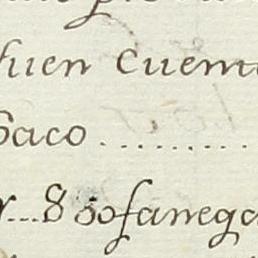 fuen cuent
Saco ..........
r...8 50fanega